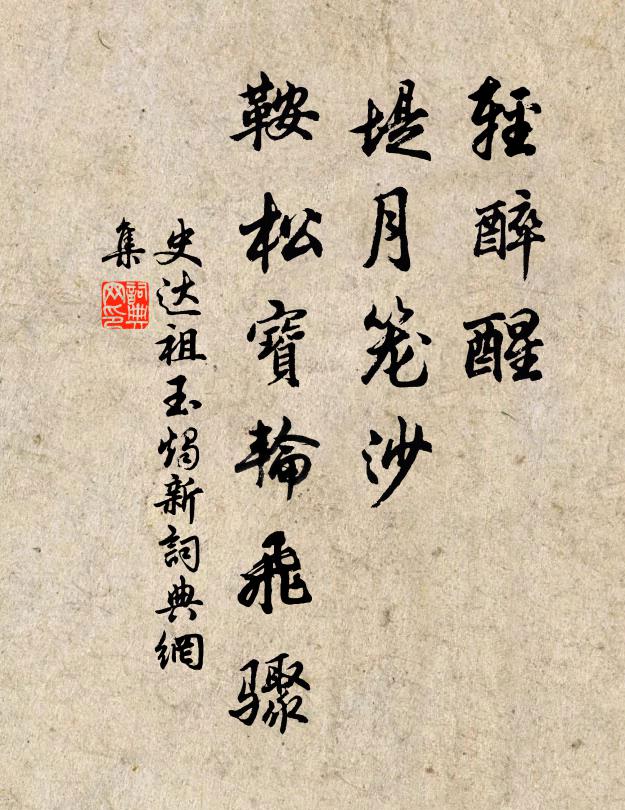 輕醉醒
堤月笼沙
鞍松寶輪飛驟
史达祖玉燭新詞典網
集
詞典
网印